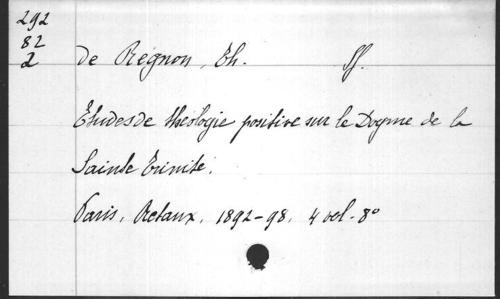 292
82
2
de Régnon, Th. SJ.
Etudes de théologie positive sur le Dogme de la
Sainte Trinité.
Paris, Retaux, 1892-98. 4 vol. 8°